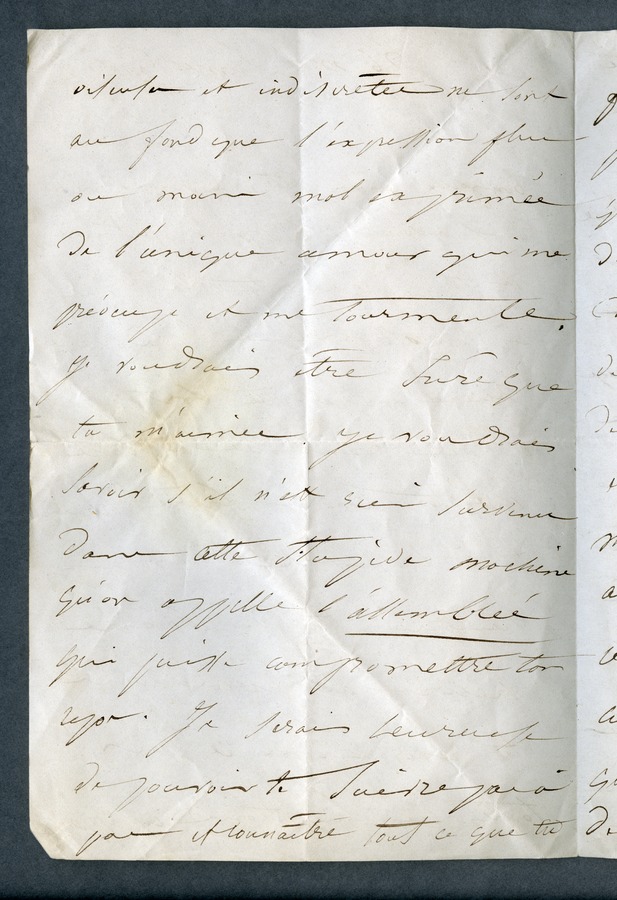 oiseuses et indiscrètes ne sont
au fond que l'expression plus
ou moins mal exprimée
de l'unique amour qui me
préocupe et me tourmente.
Je voudrais être sûre que
tu m'aimes. Je voudrais
savoir s'il n'est rien survenu
dans cette stupide machine
qu'on appelle l'assemblée
qui puisse compromettre ton
repos. Je serais heureuse
de pouvoir te suivre pas à
pas et connaître tout ce que tu